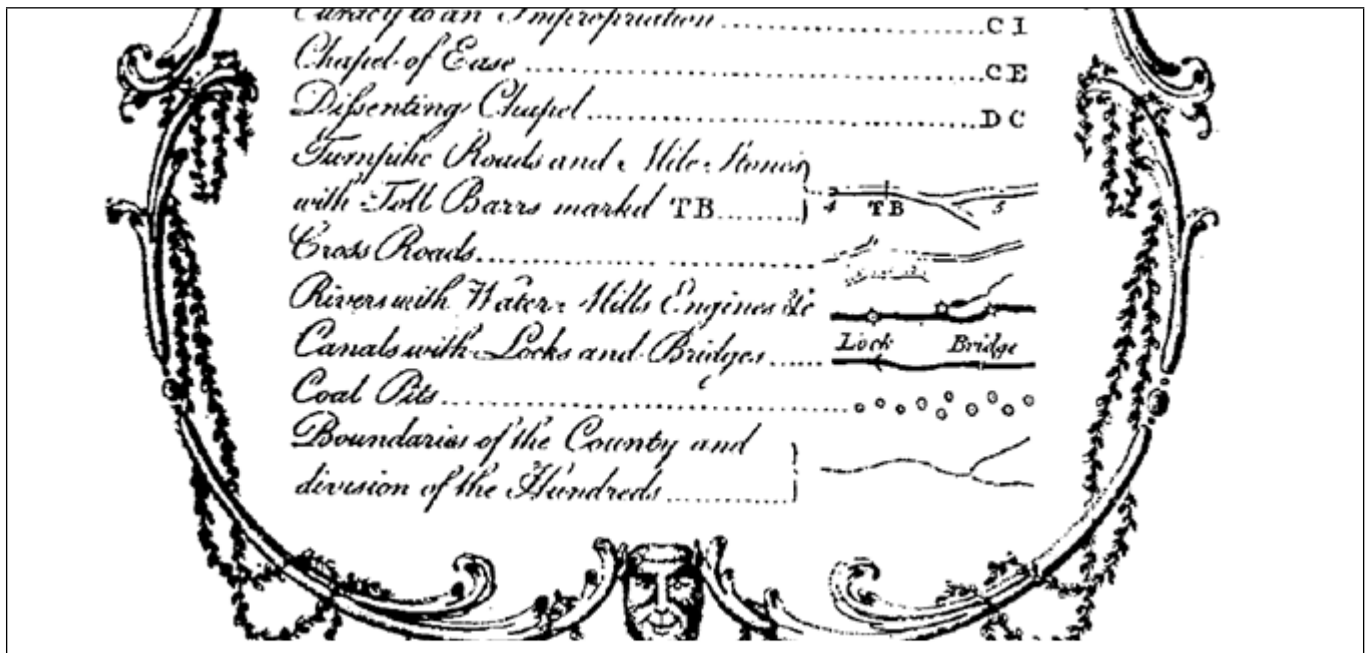 Curacy to an Impropriation ........ C I
Chapel of Ease ........ C E
Difsenting Chapel ........ D C
Turnpike Roads and Mile Stones
with Toll Barrs markd TB ........ 4 TB 5
Cross Roads ........
Rivers with Water Mills Engines &c
Lock Bridge
Canals with Locks and Bridges ......
Coal Pits ........
Boundaries of the County and
division of the Hundreds ........